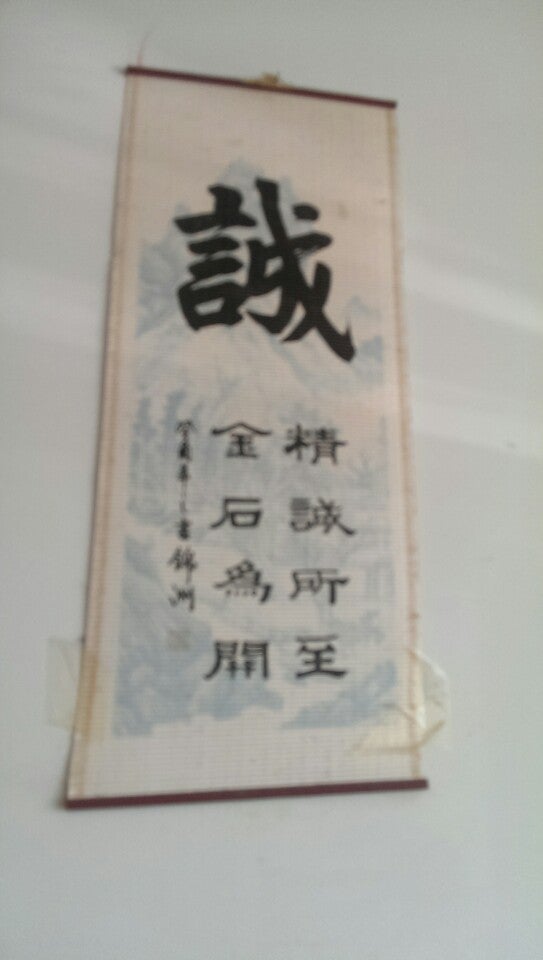 誠
精誠所至
金石為開
錦洲